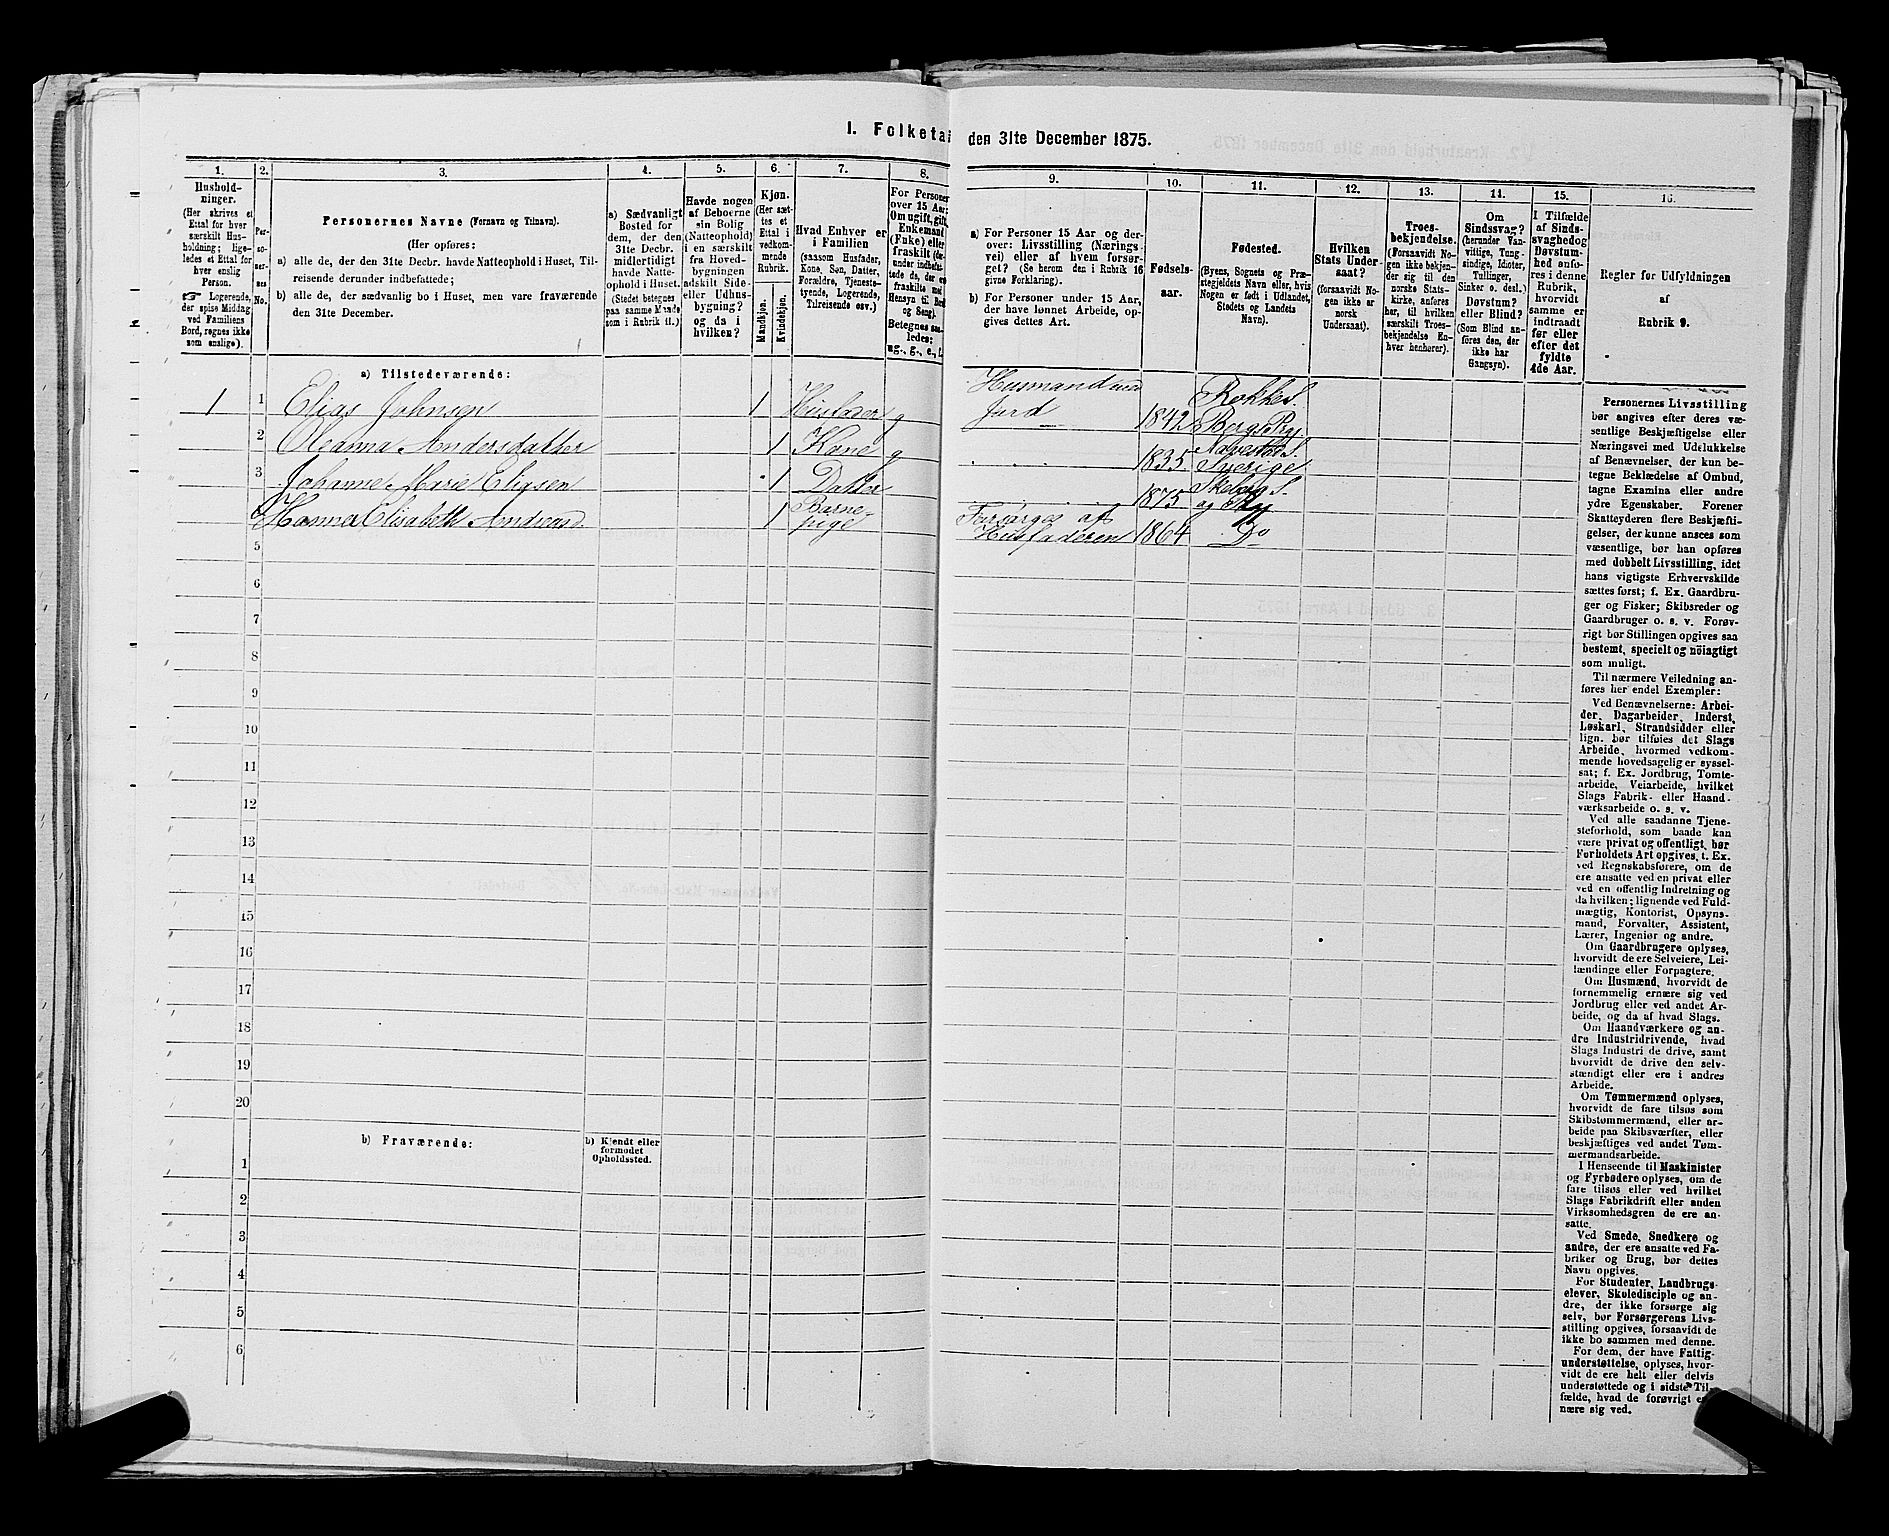 I. Folketæl
den 31te December 1875.
1.
Hushold-
ninger.
(Her skrives et
Ettal for hver
særskilt Hus-
holdning; lige-
ledes et Ettal for
hver enslig
Person.
☞ Logerende,
der spise Middag
ved Familiens
Bord, regnes ikke
som enslige).
2.
Per-
so-
ner-
nes
No.
3.
Personernes Navne (Fornavn og Tilnavn).
(Her opføres:
a) alle de, der den 31te Decbr. havde Natteophold i Huset, Til-
reisende derunder indbefattede;
b) alle de, der sædvanlig bo i Huset, men vare fraværende
den 31te December.
4.
a) Sædvanligt
Bosted for
dem, der den
31te Decbr.
midlertidigt
havde Natte-
ophold i Huset.
(Stedet betegnes
paa samme Maade
som i Rubrik 11.)
5.
Havde nogen
af Beboerne
sin Bolig
(Natteophold)
i en særskilt
fra Hoved-
bygningen
adskilt Side-
eller Udhus-
bygning?
og da i
hvilken?
6.
Kjøn.
(Her sæt-
tes et
Ettal i
vedkom-
mende
Rubrik.
Mandkjøn.
Kvindekjøn.
7.
Hvad Enhver er
i Familien
(saasom Husfader,
Kone, Søn, Datter,
Forældre, Tjeneste-
tyende, Logerende,
Tilreisende osv.)
8.
For Personer
over 15 Aar:
Om ugift, gift,
Enkemand
(Enke) eller
fraskilt (der-
under indbefat-
tede de, der ere
fraskilte med
Hensyn til Bord
og Seng).
Betegnes saa-
ledes:
ug., g., e., f.
9.
a) For Personer 15 Aar og der-
over: Livsstilling (Nærings-
vei) eller af hvem forsør-
get? (Se herom den i Rubrik 16
givne Forklaring).
b) For Personer under 15 Aar,
der have lønnet Arbeide, op-
gives dettes Art.
10.
Fødsels-
aar.
11.
Fødested.
(Byens, Sognets og Præ-
stegjeldets Navn eller, hvis
Nogen er født i Udlandet,
Stedets og Landets
Navn).
12.
Hvilken
Stats Under-
saat?
(forsaavidt No-
gen ikke er
norsk
Undersaat).
13.
Troes-
bekjendelse.
(Forsaavidt No-
gen ikke bekjen-
der sig til den
norske Stats-
kirke, anføres
her, til hvilken
særskilt Troes-
bekjendelse En-
hver henhører).
14.
Om
Sindssvag?
(herunder Van-
vittige, Tung-
sindige, Idioter,
Tullinger,
Sinker o. desl.)
Døvstum?
eller Blind?
(Som Blind an-
føres den, der
ikke har
Gangsyn).
15.
I Tilfælde
af Sinds-
svaghed og
Døvstum-
hed anfø-
res i denne
Rubrik,
hvorvidt
samme er
indtraadt
før eller
efter det
fyldte
4de Aar.
16.
Regler for Udfyldningen
af
Rubrik 9.
a) Tilstedeværende:
1 1 Elias Johnsen 1 Husfader g Husmand med Jord 1842 Rokke S. Bergs Pgj.
2 Oleanna Andersdatter 1 Kone g 1835 S. Sverige
3 Johanne Marie Eliasen 1 Datter 1875 Skeberg S. og Pgj
Hanna Elisabeth Andreasd. 1 Barne-pige Forsørges af Husfaderen 1864 Do
5
6
7
8
9
10
11
12
13
14
15
16
17
18
19
20
b) Fraværende:
b) Kjendt eller
formodet
Opholdssted.
1
2
3
4
5
6
Personernes Livsstilling
bør angives efter deres væ-
sentlige Beskjæftigelse eller
Næringsvei med Udelukkelse
af Benævnelser, der kun be-
tegne Beklædelse af Ombud,
tagne Examina eller andre
ydre Egenskaber. Forener
Skatteyderen flere Beskjæfti-
gelser, der kunne ansees som
væsentlige, bør han opføres
med dobbelt Livsstilling, idet
hans vigtigste Erhvervskilde
sættes først; f. Ex. Gaardbru-
ger og Fisker; Skibsreder og
Gaardbruger o. s. v. Forøv-
rigt bør Stillingen opgives saa
bestemt, specielt og nöiagtigt
som muligt.
Til nærmere Veiledning an-
føres her endel Exempler:
Ved Benævnelserne: Arbei-
der, Dagarbeider, Inderst,
Løskarl, Strandsidder eller
lign. bør tilføies det Slags
Arbeide, hvormed vedkom-
mende hovedsagelig er syssel-
sat; f. Ex. Jordbrug, Tomte-
arbeide, Veiarbeide, hvilket
Slags Fabrik- eller Haand-
værksarbeide o. s. v.
Ved alle saadanne Tjene-
steforhold, som baade kan
være privat og offentligt, bør
Forholdets Art opgives, t. Ex.
ved Regnskabsførere, om de
ere ansatte ved en privat eller
ved en offentlig Indretning og
da hvilken; lignende ved Fuld-
mægtig, Kontorist, Opsyns-
mand, Forvalter, Assistent,
Lærer, Ingeniør og andre.
Om Gaardbrugere oplyses,
hvorvidt de ere Selveiere, Lei-
lændinge eller Forpagtere.
Om Husmænd, hvorvidt de
fornemmelig ernære sig ved
Jordbrug eller ved andet Ar-
beide, og da af hvad Slags.
Om Haandværkere og an-
dre Industridrivende, hvad
Slags Industri de drive, samt
hvorvidt de drive den selv-
stændigt eller ere i andres
Arbeide.
Om Tømmermænd oplyses,
hvorvidt de fare tilsøs som
Skibstømmermænd, eller ar-
beide paa Skibsværfter, eller
beskjæftiges ved andet Tøm-
mermandsarbeide.
I Henseende til Maskinister
og Fyrbødere oplyses, om de
fare tilsøs eller ved hvilket
Slags Fabrikdrift eller anden
Virksomhedsgren de ere an-
satte.
Ved Smede, Snedkere og
andre, der ere ansatte ved Fa-
briker og Brug, bør dettes
Navn opgives.
For Studenter, Landbrugs-
elever, Skoledisciple og an-
dre, der ikke forsørge sig
selv, bør Forsørgerens Livs-
stilling opgives, forsaavidt de
ikke bo sammen med denne.
For dem, der have Fattig-
understøttelse, oplyses, hvor-
vidt de ere helt eller delvis
understøttede og i sidste Til-
fælde, hvad de forøvrigt er-
nære sig ved.